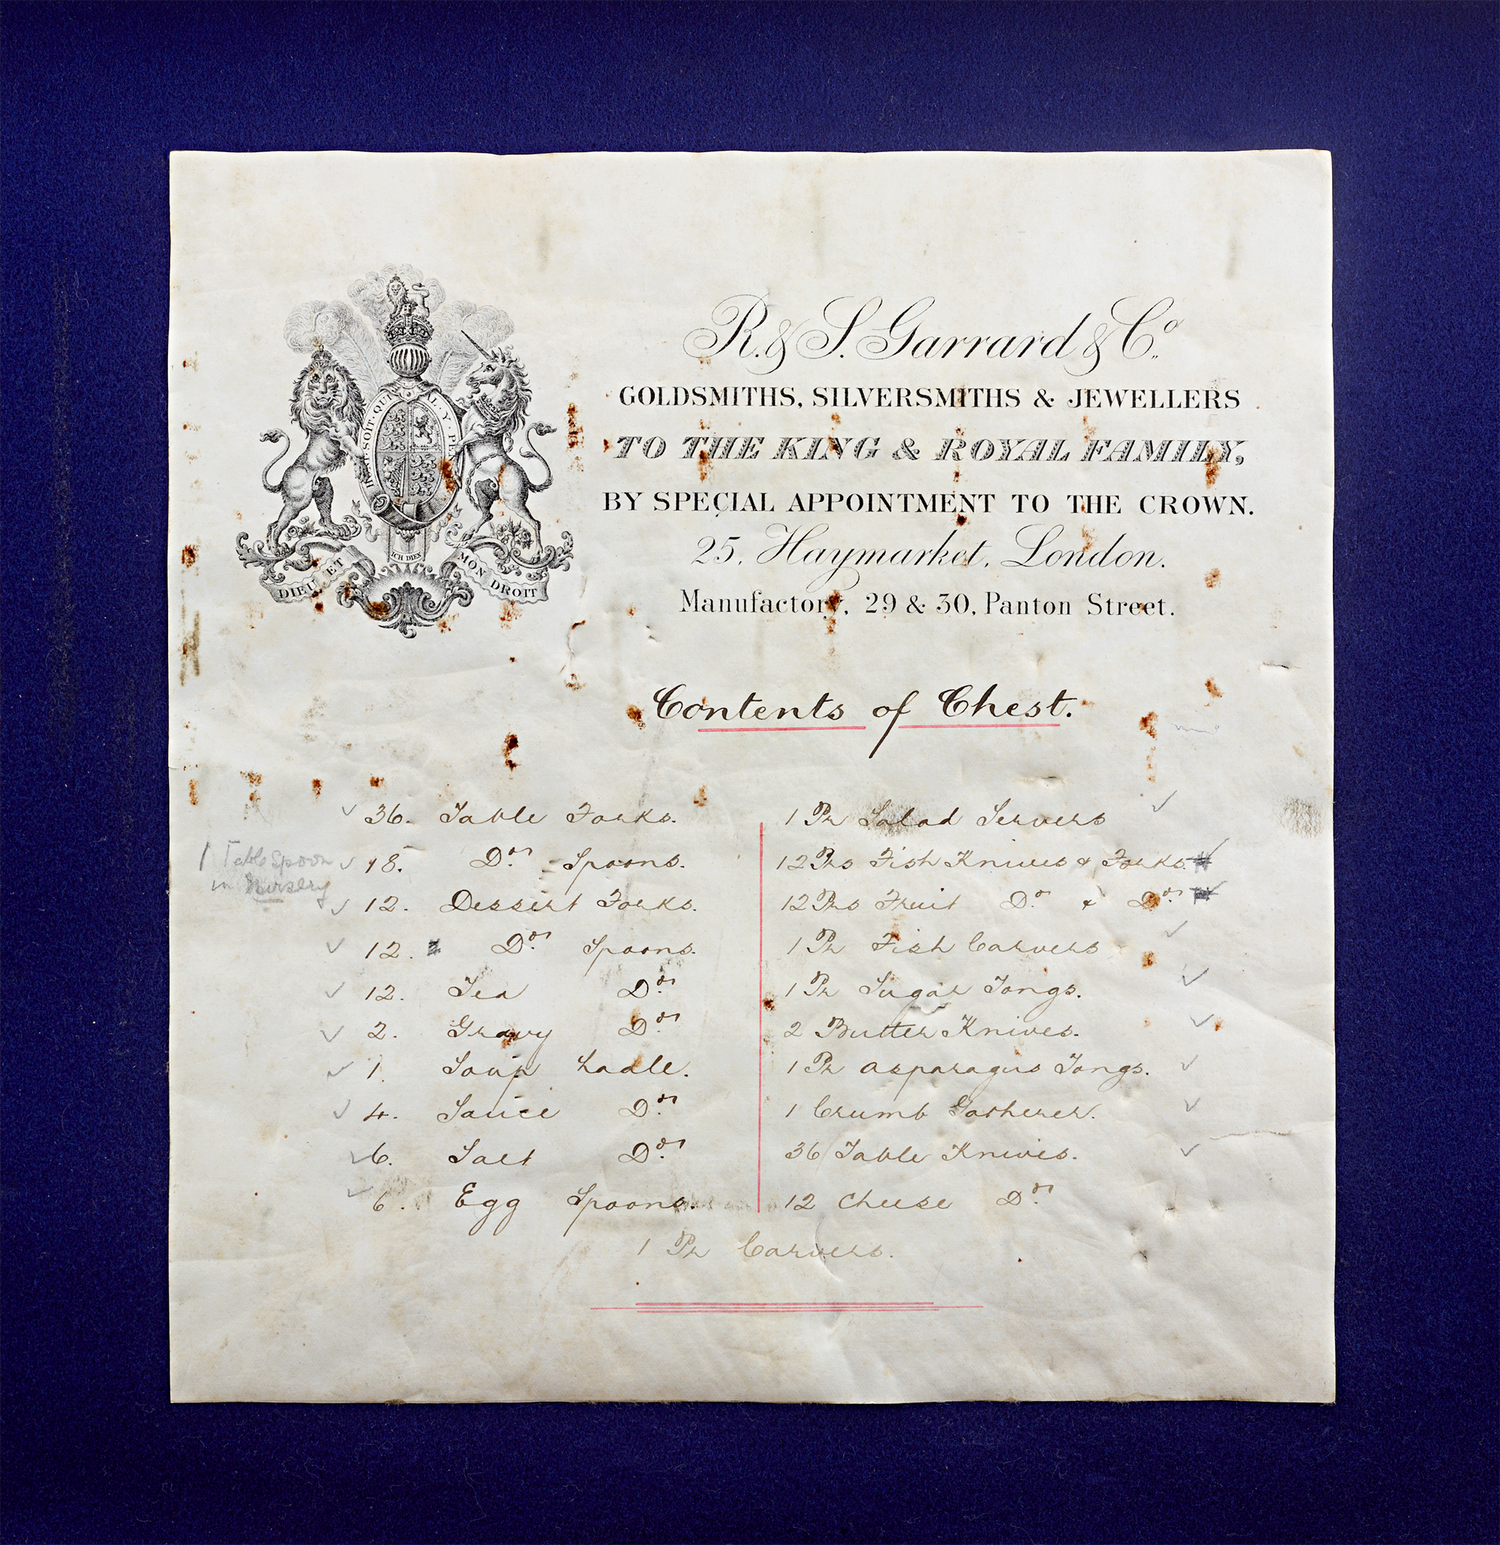 HONI·SOIT·QUI·MAL·Y·PE
ICH DIEN
DIEU ET MON DROIT
R. & S. Garrard & Co.
GOLDSMITHS, SILVERSMITHS & JEWELLERS
TO THE KING & ROYAL FAMILY,
BY SPECIAL APPOINTMENT TO THE CROWN.
25, Haymarket, London.
Manufactory, 29 & 30, Panton Street.
Contents of Chest.
36. Table Forks.
18. Do. Spoons.
1 Table Spoon
in Nursery
12. Dessert Forks.
12. Do. Spoons.
12. Tea Do.
2. Gravy Do.
1. Soup Ladle.
4. Sauce Do.
6. Salt Do.
6. Egg Spoons.
1 Pr Salad Servers
12 Prs Fish Knives & Forks.
12 Prs Fruit Do & Do.
1 Pr Fish Carvers
1 Pr Sugar Tongs.
2 Butter Knives.
1 Pr Asparagus Tongs.
1 Crumb Gatherer.
36 Table Knives.
12 Cheese Do.
1 Pr Carvers.